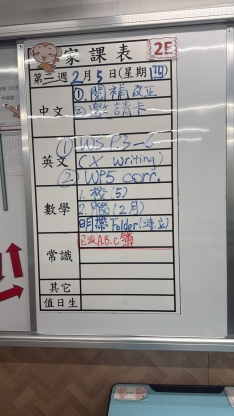 家課表
2E
第二週2月5日(星期四)
中文
①閱補改正
②邀請卡
英文
① WS P3-6
(X writing)
② WP5 corr.
數學
1. 校(5)
2. 腦(2月)
明帶Folder
常識
已派A.B.C簿
其它
值日生